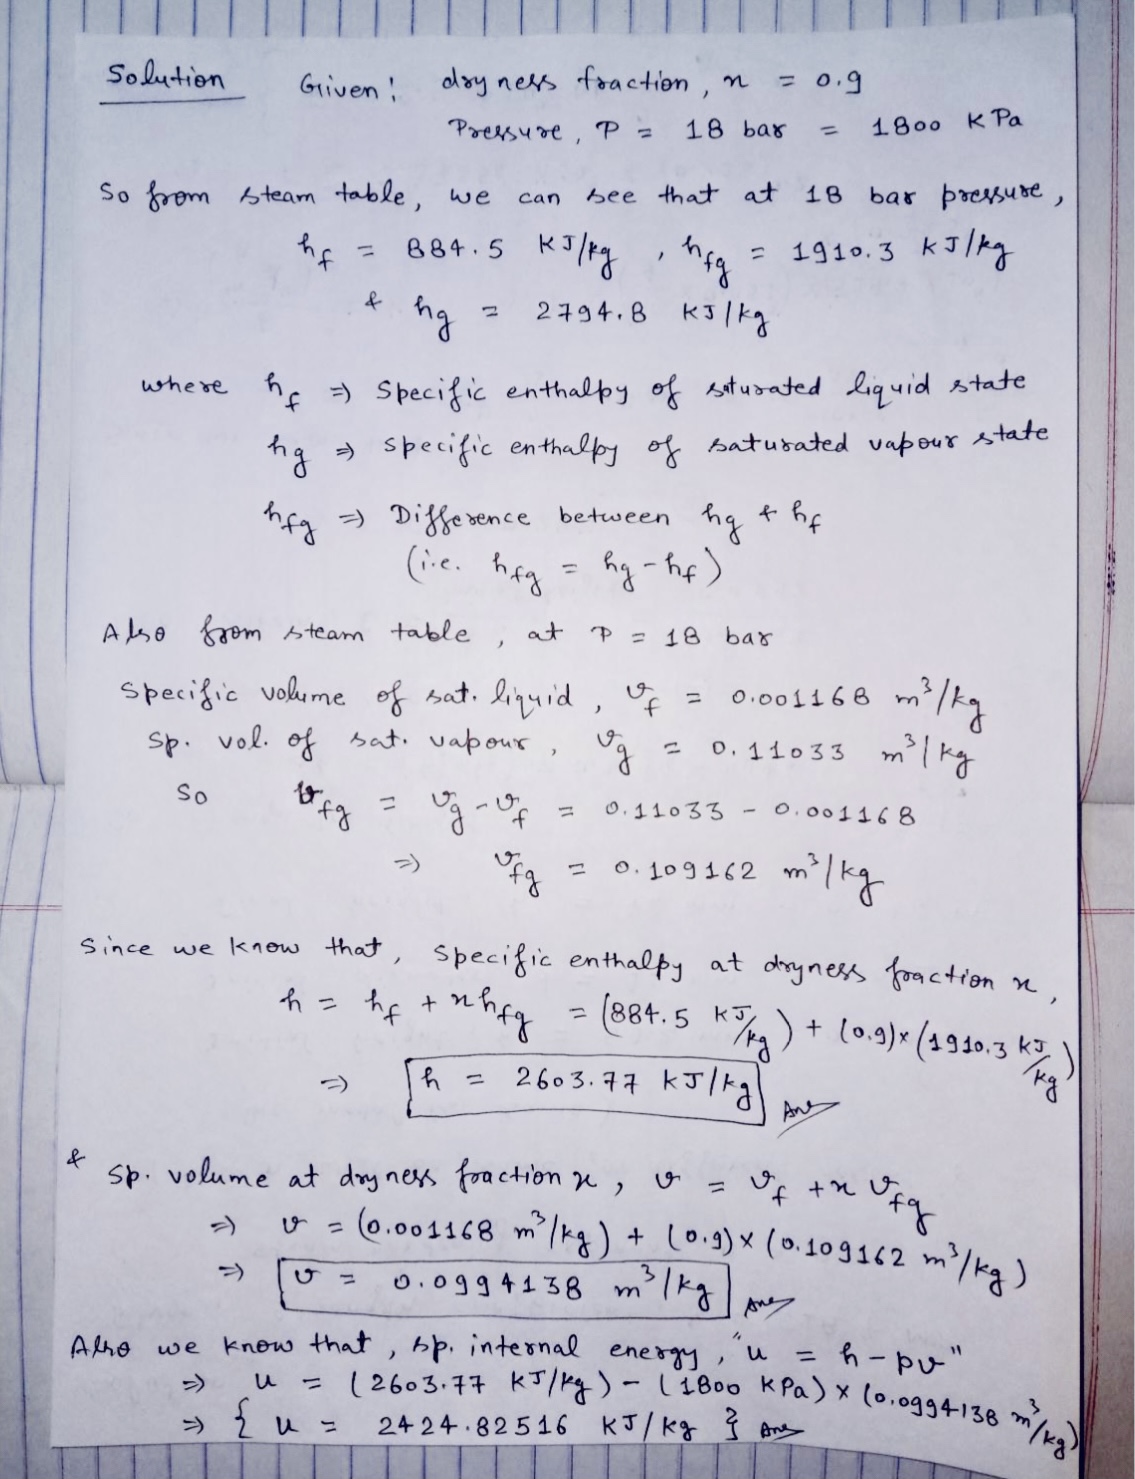 Solution Given: dryness fraction, x = 0.9
Pressure, P = 18 bar = 1800 KPa
So from steam table, we can see that at 18 bar pressure,
hf = 884.5 KJ/kg , hfg = 1910.3 KJ/kg
& hg = 2794.8 KJ/kg
where hf ⇒ Specific enthalpy of saturated liquid state
hg ⇒ Specific enthalpy of saturated vapour state
hfg ⇒ Difference between hg & hf
(i.e. hfg = hg - hf)
Also from steam table, at P = 18 bar
Specific volume of sat. liquid, vf = 0.001168 m³/kg
Sp. vol. of sat. vapour, vg = 0.11033 m³/kg
So vfg = vg - vf = 0.11033 - 0.001168
⇒ vfg = 0.109162 m³/kg
Since we know that, specific enthalpy at dryness fraction x,
h = hf + x hfg = (884.5 KJ/kg) + (0.9)×(1910.3 KJ/kg)
⇒ h = 2603.77 KJ/kg Ans
& Sp. volume at dryness fraction x, v = vf + x vfg
⇒ v = (0.001168 m³/kg) + (0.9)×(0.109162 m³/kg)
⇒ v = 0.0994138 m³/kg Ans
Also we know that, sp. internal energy, "u = h - pv"
⇒ u = (2603.77 KJ/kg) - (1800 KPa) × (0.0994138 m³/kg)
⇒ { u = 2424.82516 KJ/kg } Ans